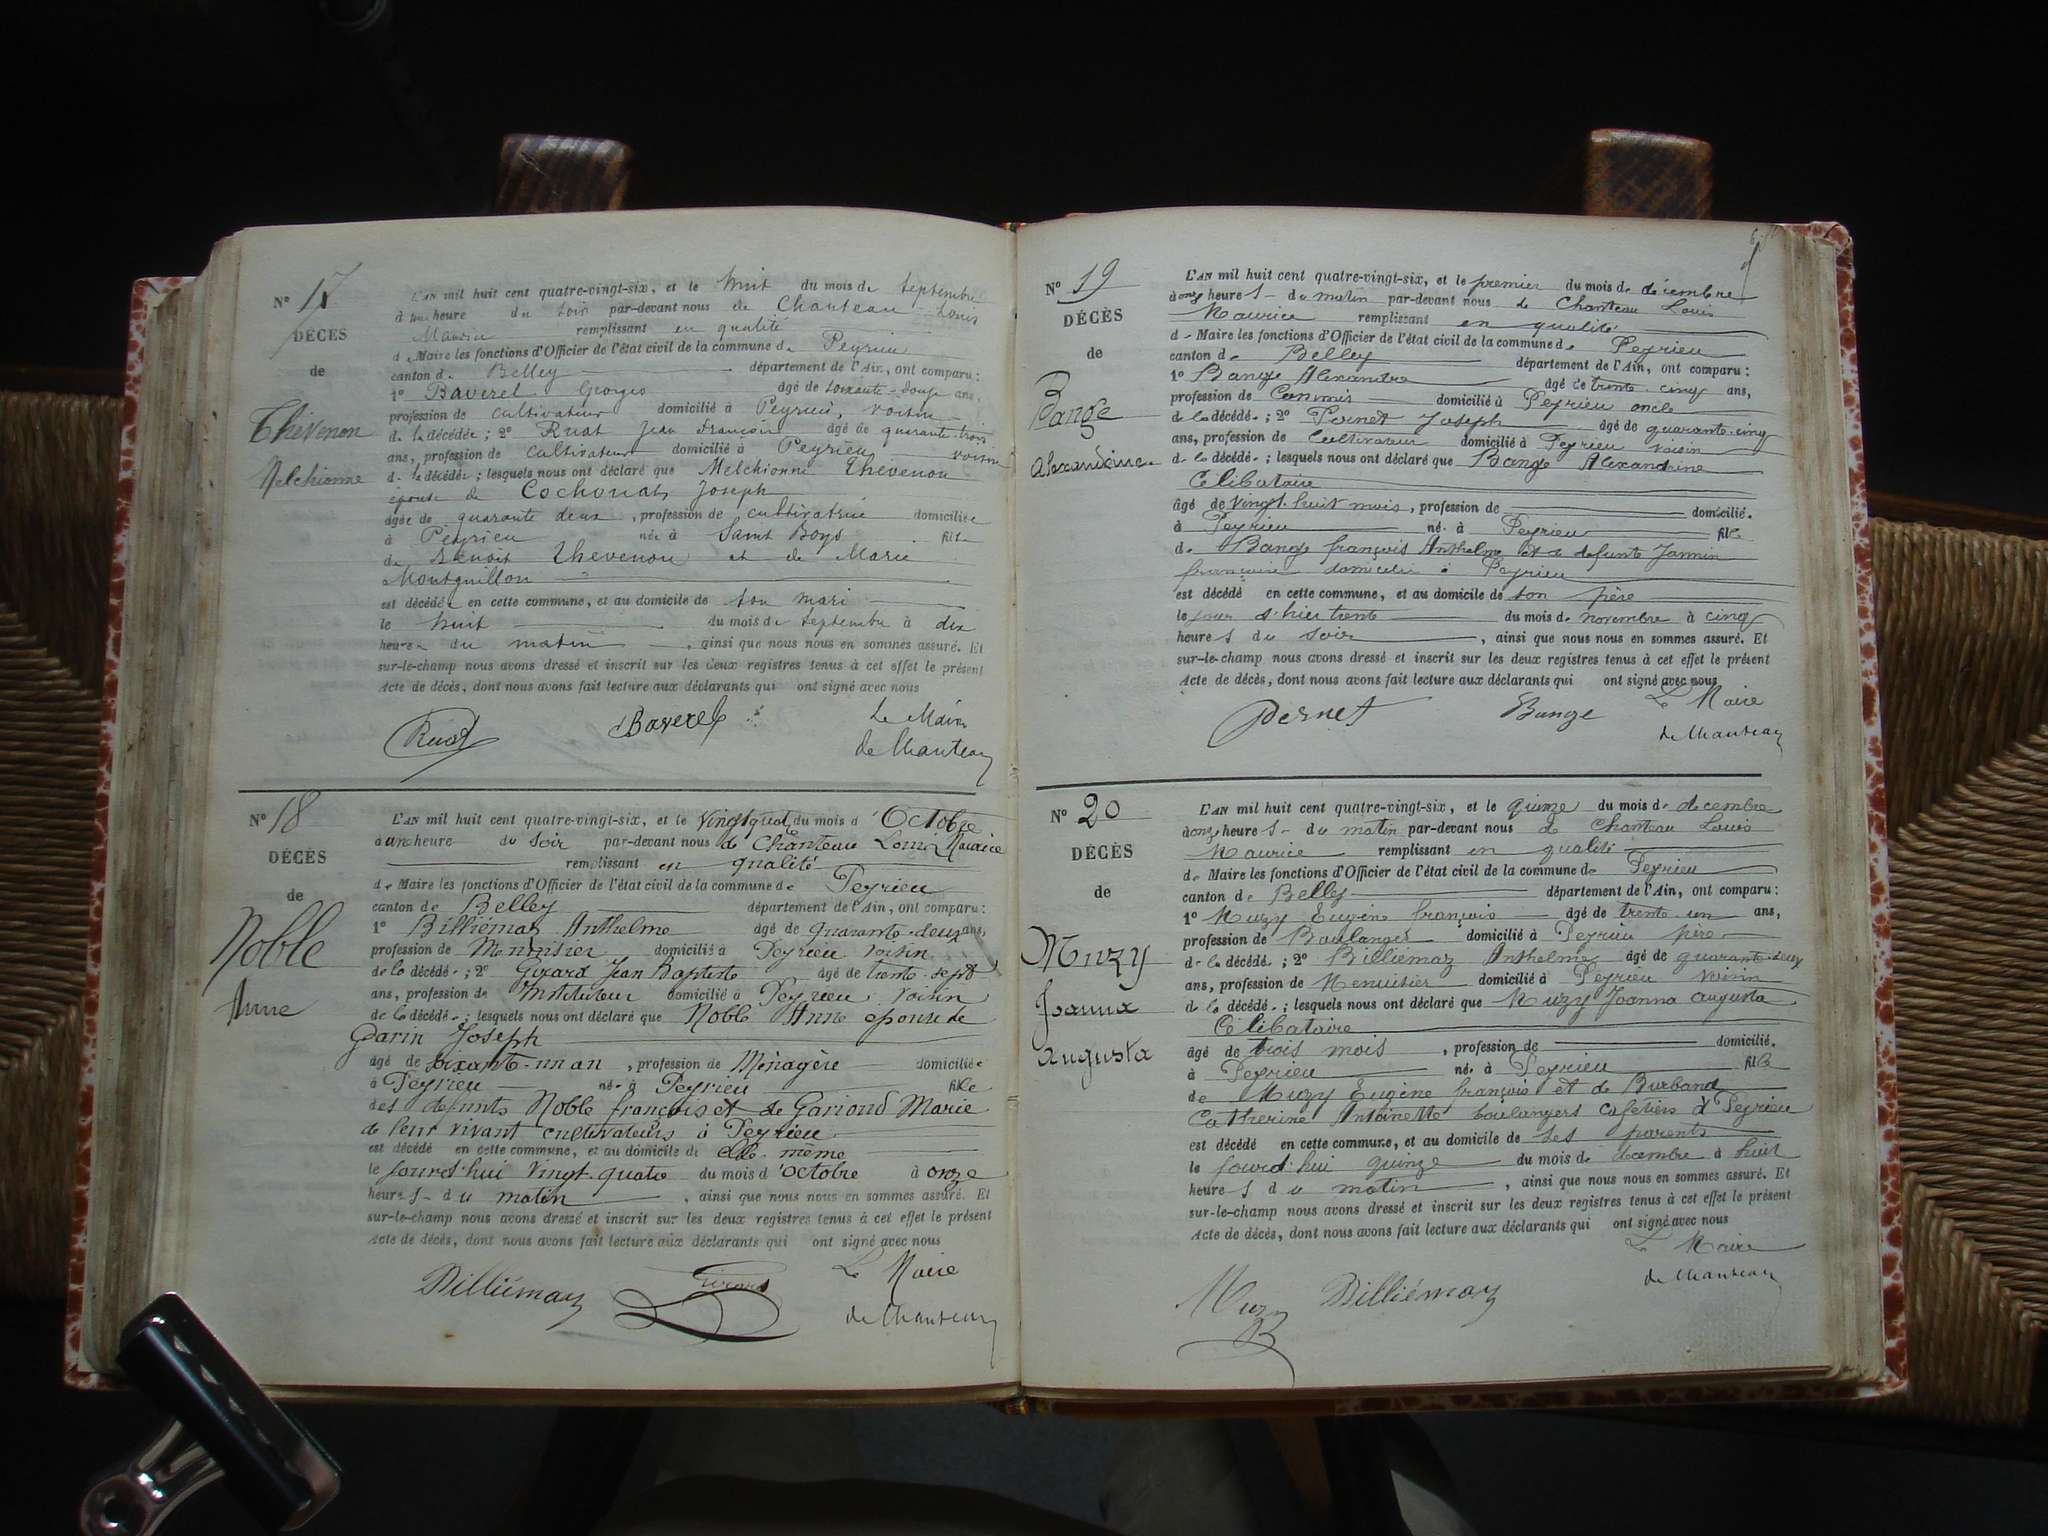 N° 17
DÉCÈS
de
Thévenon
Melchionne
L'AN mil huit cent quatre-vingt-six, et le huit du mois de Septembre
à une heure du soir par-devant nous de Chanteau Louis
Maurice remplissant en qualité
de Maire les fonctions d'Officier de l'état civil de la commune de Peyrieu
canton de Belley département de l'Ain, ont comparu :
1° Baverel Georges âgé de soixante-douze ans,
profession de cultivateur domicilié à Peyrieu, voisin
de la décédée ; 2° Ruat Jean François âgé de quarante-trois
ans, profession de cultivateur domicilié à Peyrieu voisin
de la décédée ; lesquels nous ont déclaré que Melchionne Thévenon
épouse de Cochonat Joseph
âgée de quarante deux , profession de cultivatrice domiciliée
à Peyrieu née à Saint Boys fille
de Benoit Thévenon et de Marie
Montquillon
est décédée en cette commune, et au domicile de son mari
le huit du mois de Septembre à dix
heures du matin , ainsi que nous nous en sommes assuré. Et
sur-le-champ nous avons dressé et inscrit sur les deux registres tenus à cet effet le présent
Acte de décès, dont nous avons fait lecture aux déclarants qui ont signé avec nous
Ruat Baverel Le Maire
de Chanteau
N° 18
DÉCÈS
de
Noble
Anne
L'AN mil huit cent quatre-vingt-six, et le vingt quat. du mois d'Octobre
à une heure du soir par-devant nous de Chanteau Louis Maurice
remplissant en qualité
de Maire les fonctions d'Officier de l'état civil de la commune de Peyrieu
canton de Belley département de l'Ain, ont comparu :
1° Billiémaz Anthelme âgé de quarante-deux ans,
profession de Menuisier domicilié à Peyrieu voisin
de la décédé. ; 2° Girard Jean Baptiste âgé de trente-sept
ans, profession de Instituteur domicilié à Peyrieu voisin
de la décédé. ; lesquels nous ont déclaré que Noble Anne épouse de
Garin Joseph
âgé de soixante-un an , profession de Ménagère domiciliée
à Peyrieu né. à Peyrieu fille
des défunts Noble françois et de Gariond Marie
de leur vivant cultivateurs à Peyrieu
est décédé en cette commune, et au domicile de elle même
le jourd'hui vingt-quatre du mois d'octobre à onze
heures du matin , ainsi que nous nous en sommes assuré. Et
sur-le-champ nous avons dressé et inscrit sur les deux registres tenus à cet effet le présent
Acte de décès, dont nous avons fait lecture aux déclarants qui ont signé avec nous
Billiémaz Girard Le Maire
de Chanteau
N° 19
DÉCÈS
de
Bange
Alexandrine
L'AN mil huit cent quatre-vingt-six, et le premier du mois de décembre
à onze heures du matin par-devant nous de Chanteau Louis
Maurice remplissant en qualité
de Maire les fonctions d'Officier de l'état civil de la commune de Peyrieu
canton de Belley département de l'Ain, ont comparu :
1° Bange Alexandre âgé de trente-cinq ans,
profession de Commis domicilié à Peyrieu oncle
de la décédé. ; 2° Pernet Joseph âgé de quarante-cinq
ans, profession de Cultivateur domicilié à Peyrieu voisin
de la décédé. ; lesquels nous ont déclaré que Bange Alexandrine
Célibataire
âgé de vingt-huit mois , profession de domicilié.
à Peyrieu né. à Peyrieu fille
de Bange françois Anthelme et de défunte Jannin
françoise domicilié à Peyrieu
est décédé en cette commune, et au domicile de son père
le jour d'hier trente du mois de novembre à cinq
heures du soir , ainsi que nous nous en sommes assuré. Et
sur-le-champ nous avons dressé et inscrit sur les deux registres tenus à cet effet le présent
Acte de décès, dont nous avons fait lecture aux déclarants qui ont signé avec nous
Pernet Bange Le Maire
de Chanteau
N° 20
DÉCÈS
de
Muzy
Joanna
Augusta
L'AN mil huit cent quatre-vingt-six, et le quinze du mois de décembre
à onze heures du matin par-devant nous de Chanteau Louis
Maurice remplissant en qualité
de Maire les fonctions d'Officier de l'état civil de la commune de Peyrieu
canton de Belley département de l'Ain, ont comparu :
1° Muzy Eugène françois âgé de trente-un ans,
profession de Boulanger domicilié à Peyrieu père
de la décédé. ; 2° Billiemaz Anthelme âgé de quarante-deux
ans, profession de Menuisier domicilié à Peyrieu voisin
de la décédé. ; lesquels nous ont déclaré que Muzy Joanna augusta
Célibataire
âgé de trois mois , profession de domicilié.
à Peyrieu né. à Peyrieu fille
de Muzy Eugène françois et de Burband
Catherine Antoinette boulangers cafetiers à Peyrieu
est décédé en cette commune, et au domicile de ses parents
le jourd'hui quinze du mois de décembre à huit
heures du matin , ainsi que nous nous en sommes assuré. Et
sur-le-champ nous avons dressé et inscrit sur les deux registres tenus à cet effet le présent
Acte de décès, dont nous avons fait lecture aux déclarants qui ont signé avec nous
Muzy Billiémaz Le Maire
de Chanteau